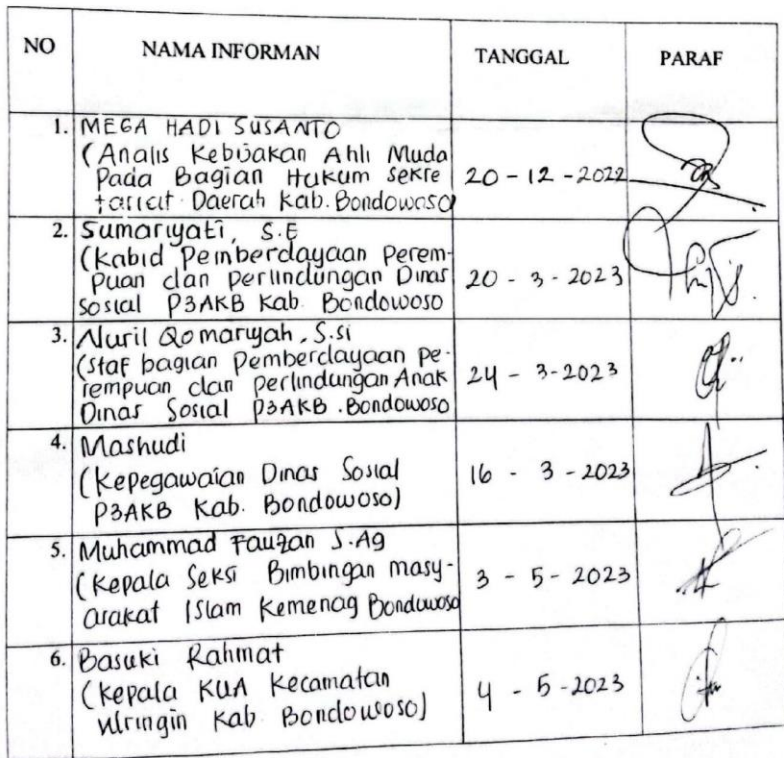 NO NAMA INFORMAN TANGGAL PARAF
1. MEGA HADI SUSANTO
(Analis Kebijakan Ahli Muda
Pada Bagian Hukum Sekre
tariat Daerah Kab. Bondowoso
20 - 12 - 2022
2. Sumariyati, S.E
(Kabid Pemberdayaan Perem-
Puan dan perlindungan Dinas
Sosial P3AKB Kab. Bondowoso
20 - 3 - 2023
3. Nuril Qomariyah, S.si
(Staf bagian Pemberdayaan pe-
rempuan dan perlindungan Anak
Dinas Sosial P3AKB . Bondowoso
24 - 3-2023
4. Mashudi
(Kepegawaian Dinas Sosial
P3AKB Kab. Bondowoso)
16 - 3 - 2023
5. Muhammad Fauzan S.Ag
(Kepala Seksi Bimbingan masy-
arakat Islam Kemenag Bondowoso
3 - 5 - 2023
6. Basuki Rahmat
(Kepala KUA Kecamatan
Wringin Kab. Bondowoso)
4 - 5 - 2023